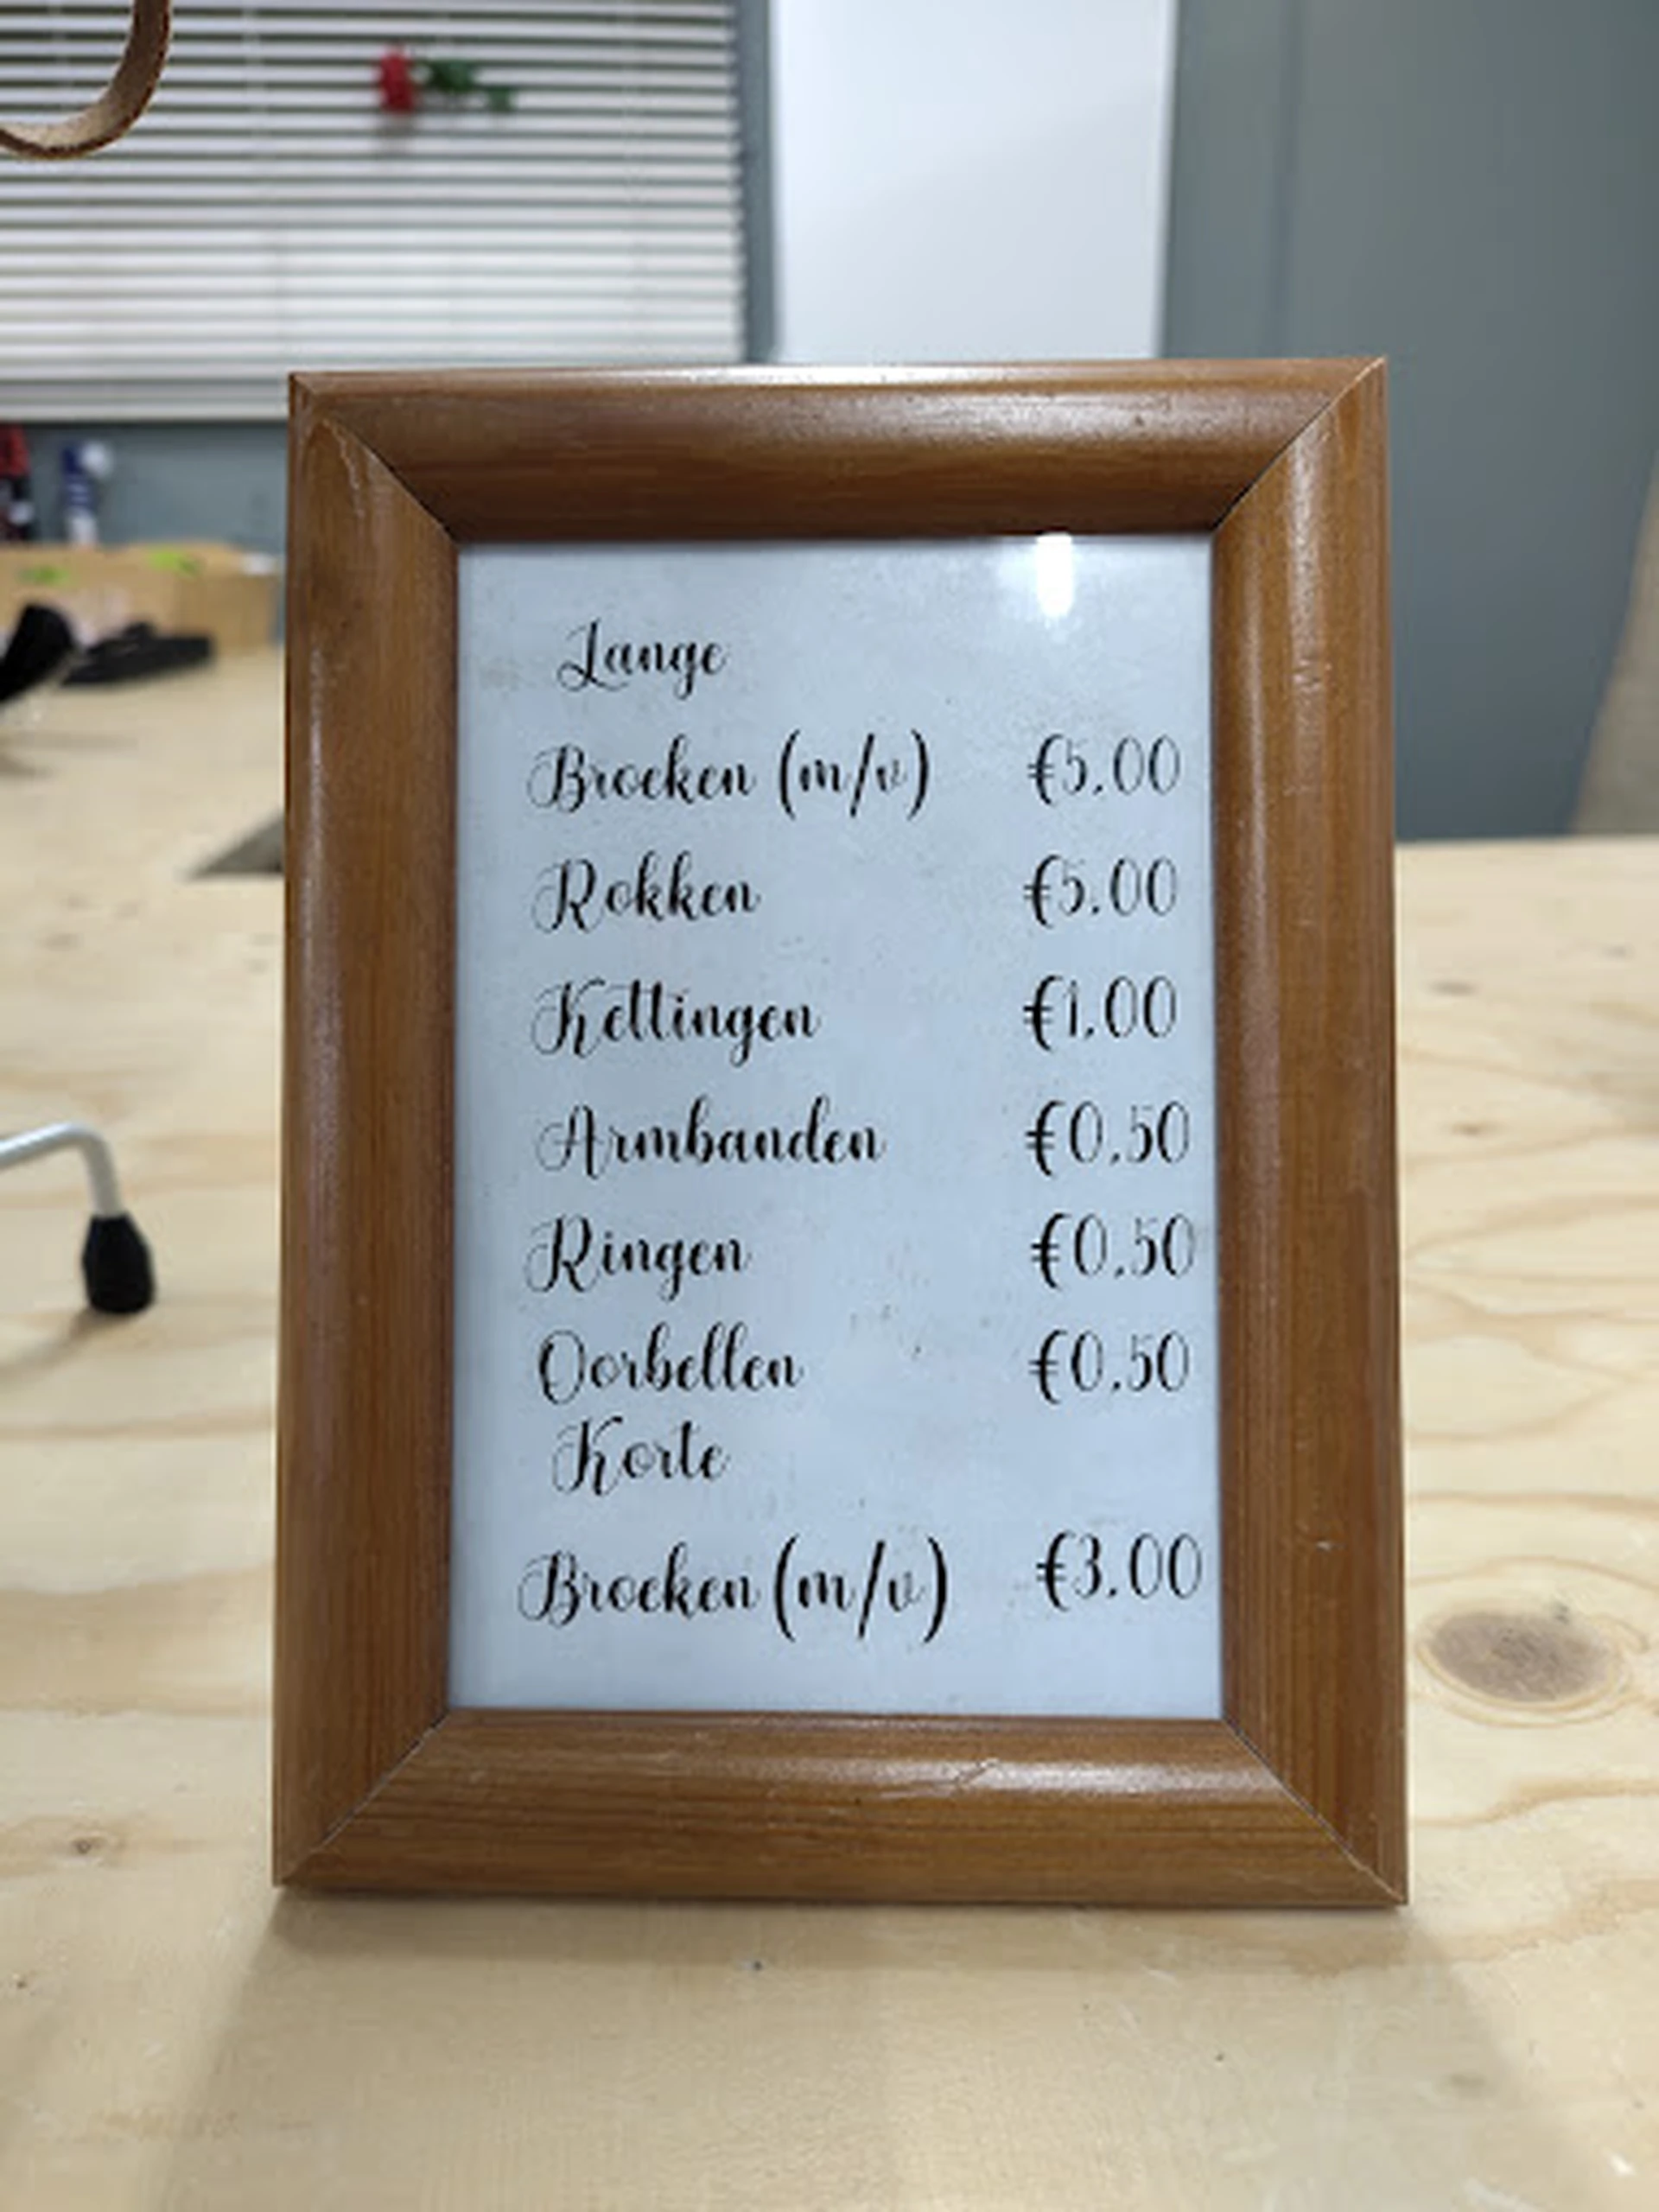 Lange
Broeken (m/v) €5.00
Rokken €5.00
Kettingen €1.00
Armbanden €0.50
Ringen €0.50
Oorbellen €0.50
Korte
Broeken (m/v) €3.00